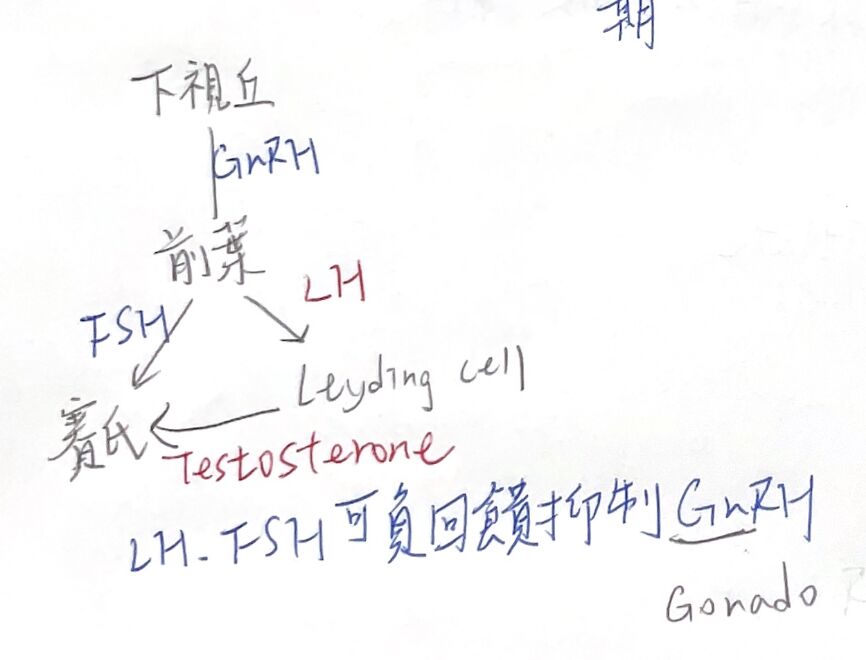 期
下視丘
GnRH
前葉
LH
FSH
Leyding cell
賽氏
Testosterone
LH.FSH可負回饋抑制GnRH
Gonado